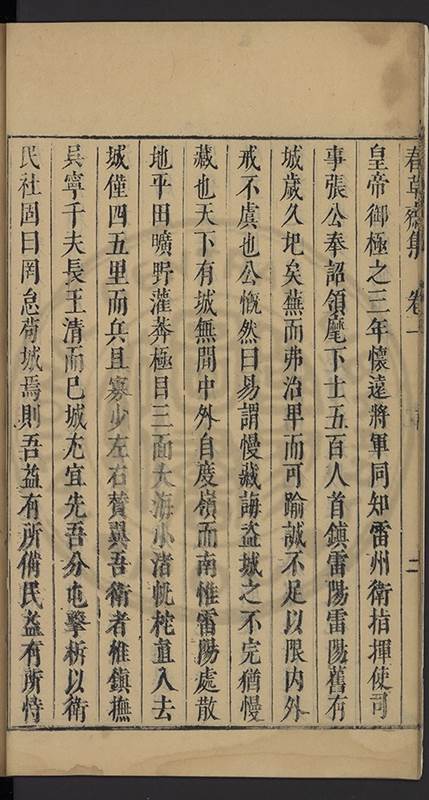 春草齋集 卷一 二
皇帝御極之三年懷遠將軍同知雷州衛指揮使司
事張公奉詔領麾下士五百人首鎮雷陽雷陽舊有
城歲久圯矣蕪而弗治卑而可踰誠不足以限内外
戒不虞也公慨然曰易謂慢藏誨盜城之不完猶慢
藏也天下有城無間中外自度嶺而南惟雷陽處散
地平田曠野灌莽極目三面大海小渚帆柁直入去
城僅四五里而兵且寡少左右贊翼吾衛者惟鎮撫
吳寧千夫長王清而已城尤宜先吾分屯擊柝以衛
民社固曰罔怠荀城焉則吾益有所僃民益有所恃